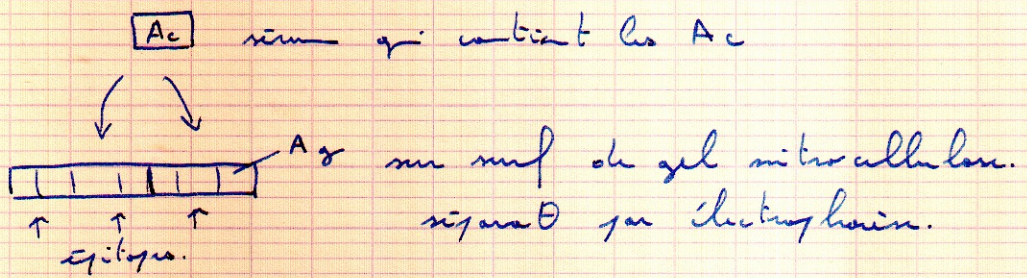 Ac sérum qui contient les Ac
Ag sur surf de gel nitrocellulose.
séparaθ par électrophorèse.
épitopes.